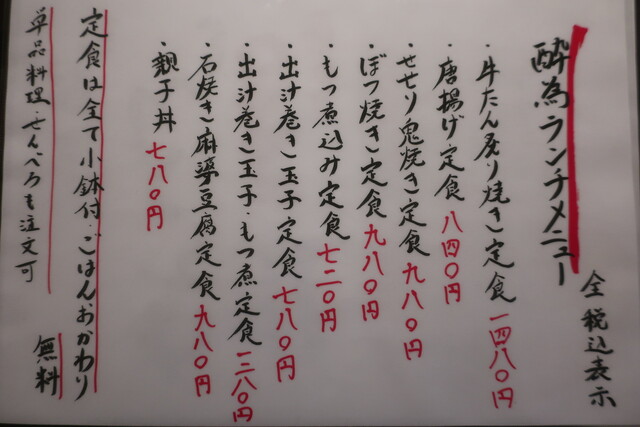 全税込表示
酔為ランチメニュー
・牛たん炙り焼き定食 一四八〇円
・唐揚げ定食 八四〇円
・せせり鬼焼き定食 九八〇円
・ぼつ焼き定食 九八〇円
・もつ煮込み定食 七二〇円
・出汁巻き玉子定食 七八〇円
・出汁巻き玉子・もつ煮定食 一二八〇円
・石焼き麻婆豆腐定食 九八〇円
・親子丼 七八〇円
定食は全て小鉢付・ごはんおかわり無料
単品料理・せんべろも注文可